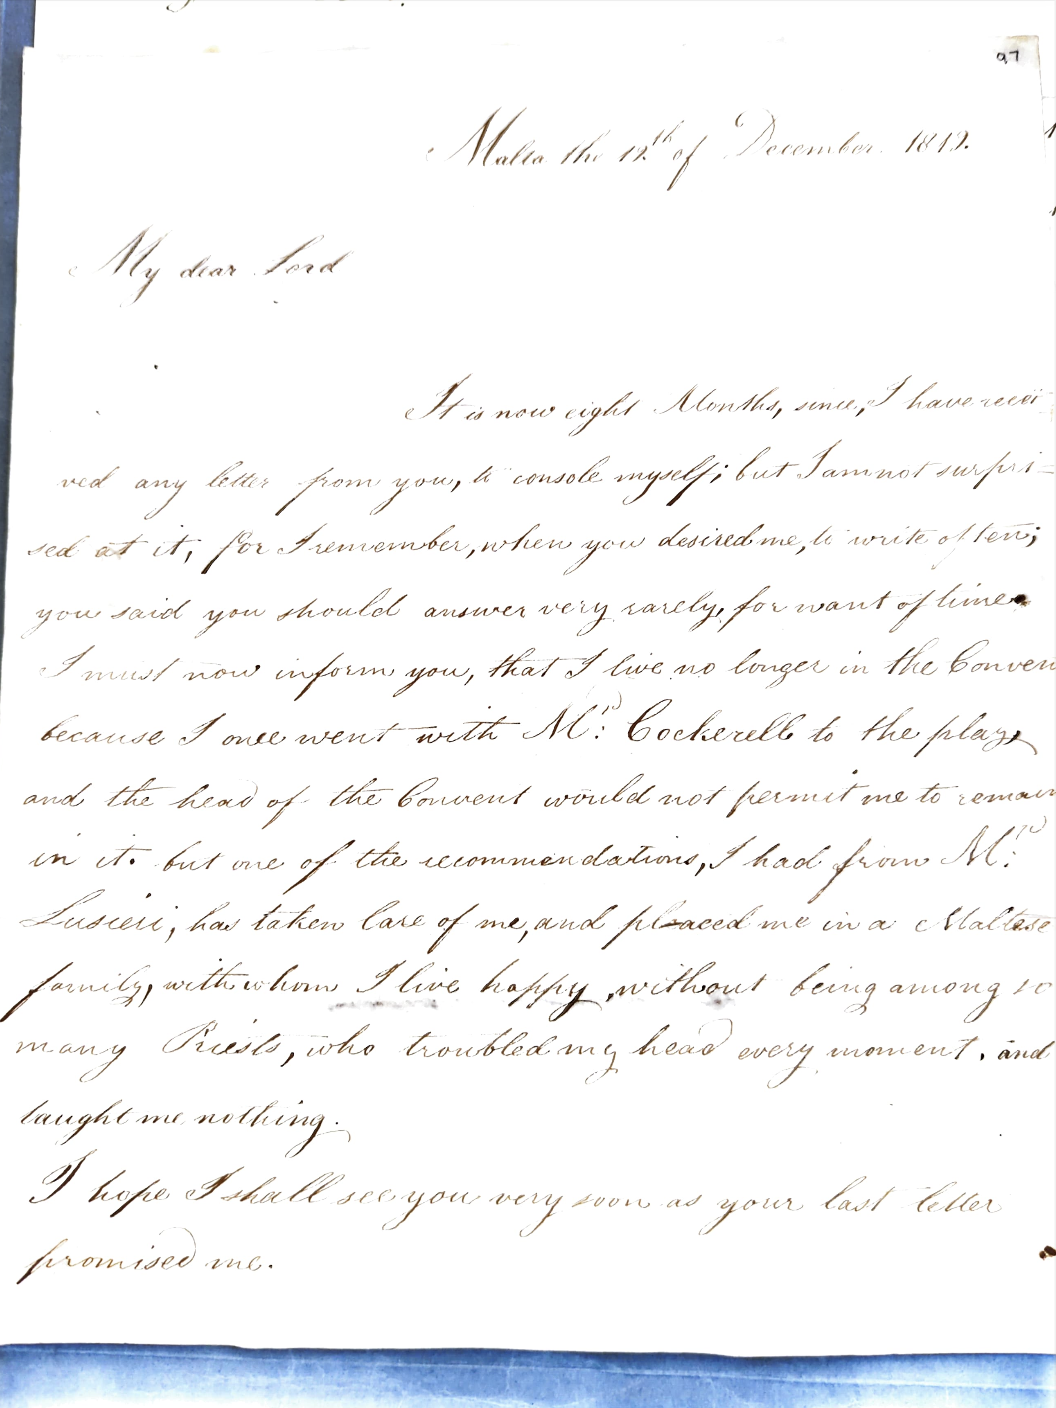 97
Malta the 12th of December. 1812.
My dear Lord
It is now eight Months, since, I have recei
ved any letter from you, to console myself; but I am not surpri=
sed at it, for I remember, when you desired me, to write often;
you said you should answer very rarely, for want of time.
I must now inform you, that I live no longer in the Conven
because I once went with Mr: Cockerell to the play,
and the head of the Convent would not permit me to remain
in it. but one of the recommendations, I had from Mr:
Lusieri, has taken Care of me, and placed me in a Maltese
family, with whom I live happy, without being among so
many Priests, who troubled my head every moment. and
taught me nothing.
I hope I shall see you very soon as your last letter
promised me.